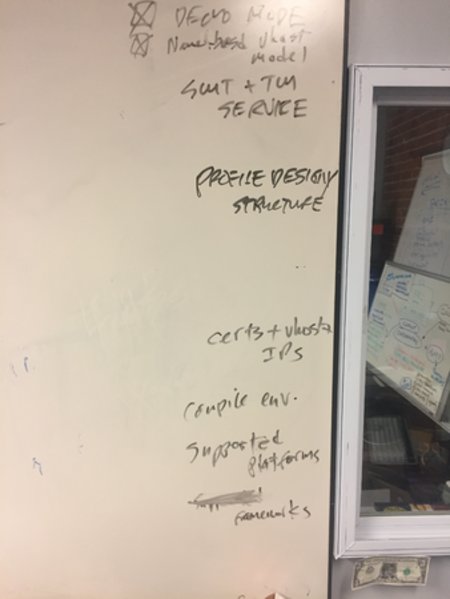 DEMO MODE
Name-based vhost
model
SMT + TM
SERVICE
PROFILE DESIGN
STRUCTURE
certs + vhosts
IPs
compile env.
supported
platforms
frameworks